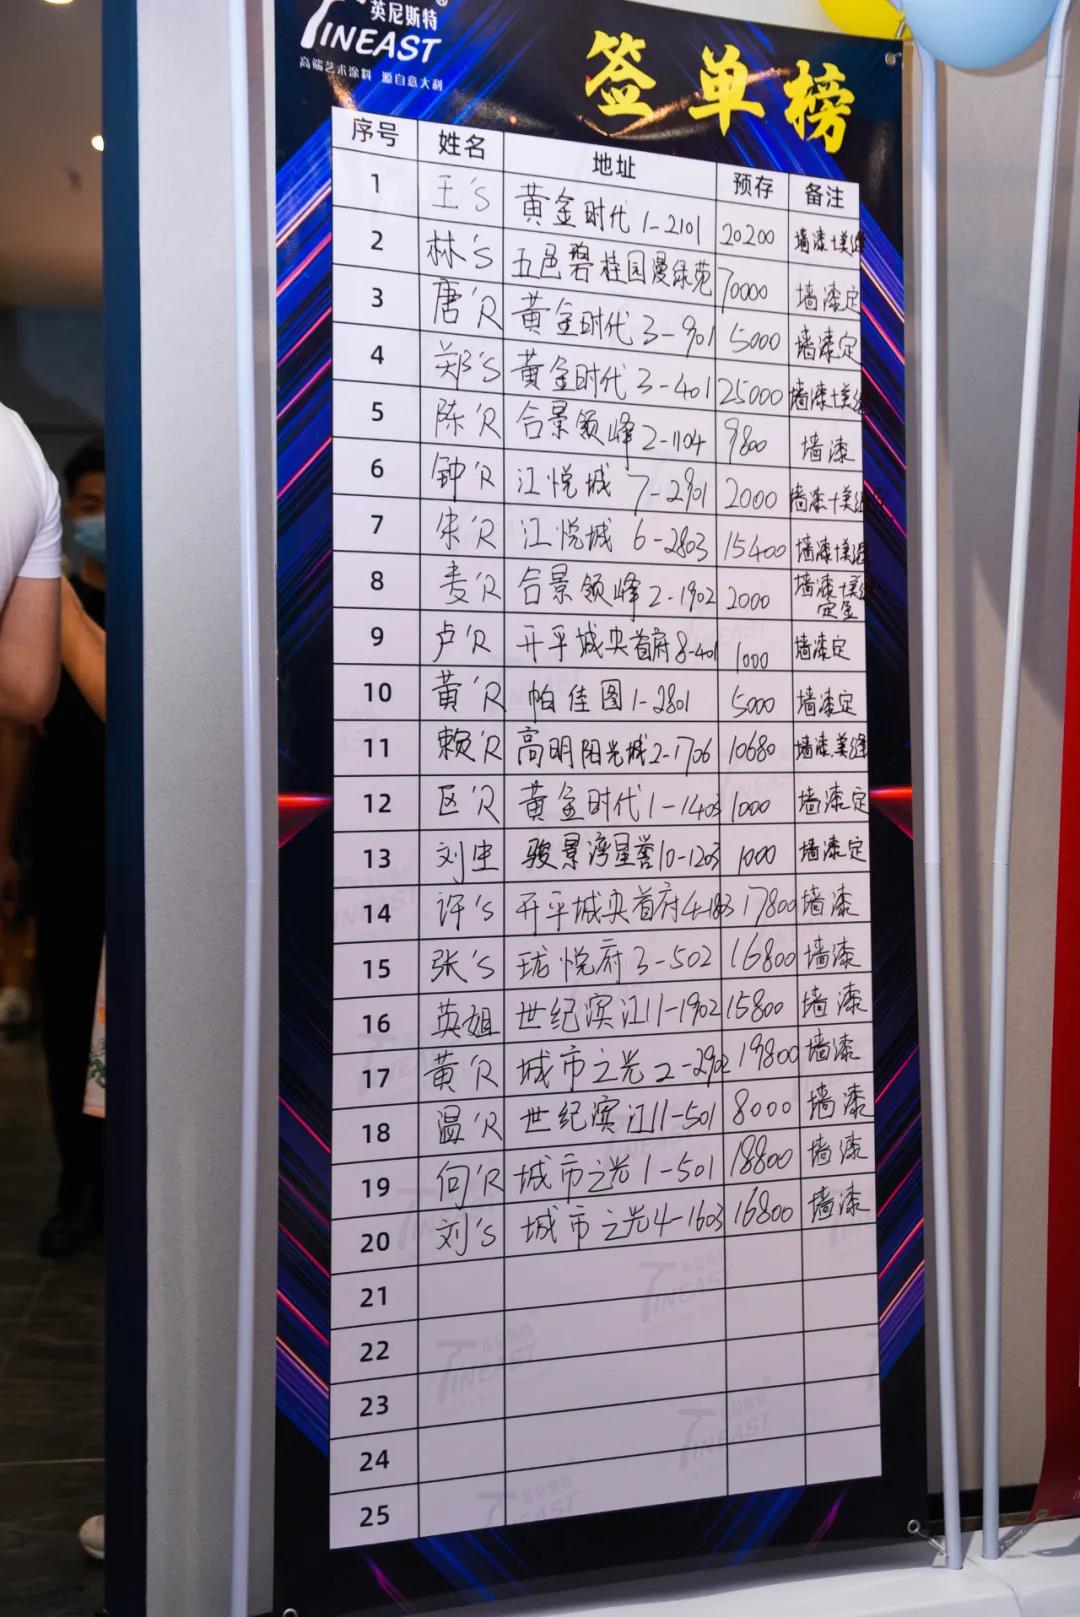 英尼斯特®
TINEAST
高端艺术涂料 源自意大利
签单榜
序号 姓名 地址 预存 备注
1 王'S 黄金时代1-2101 20200 墙漆+美缝
2 林'S 五邑碧桂园漫绿苑 70000 墙漆定
3 唐'R 黄金时代3-901 5000 墙漆定
4 郑'S 黄金时代3-401 25000 墙漆+美缝
5 陈'R 合景领峰2-1104 9800 墙漆
6 钟'R 江悦城 7-2901 2000 墙漆+美缝定
7 宋'R 江悦城 6-2803 15400 墙漆+美缝
8 麦'R 合景领峰2-1902 2000 墙漆+美缝定金
9 卢'R 开平城央首府8-401 1000 墙漆定
10 黄'R 帕佳图1-2801 5000 墙漆定
11 赖'R 高明阳光城2-1706 10680 墙漆.美缝
12 区'R 黄金时代1-1403 1000 墙漆定
13 刘生 骏景湾星誉10-1203 1000 墙漆定
14 许'S 开平城央首府4-1803 17800 墙漆
15 张'S 珑悦府3-502 16800 墙漆
16 英姐 世纪滨江11-1902 15800 墙漆
17 黄'R 城市之光2-2902 19800 墙漆
18 温'R 世纪滨江11-501 8000 墙漆
19 何'R 城市之光1-501 18800 墙漆
20 刘'S 城市之光4-1603 16800 墙漆
21
22
23
24
25